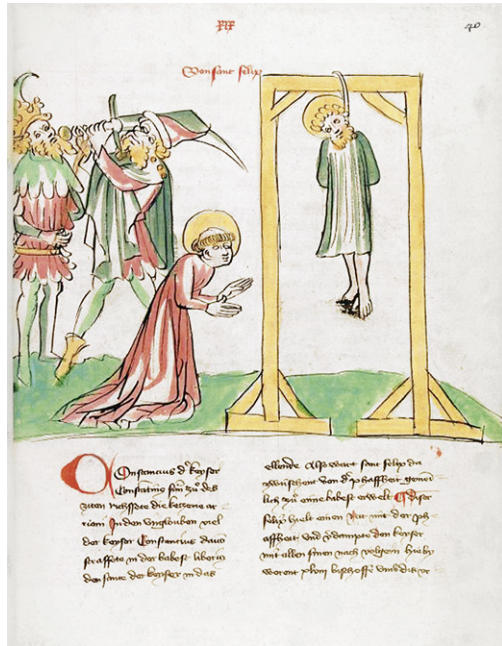 Von sant felix
COnstancius d' keyser
Constatins sun zuͦ des
ziten richssete die ketzerie ar
riani In den unglouben viel
der keyser Constancius
straffete in der babest liberiu
den sante der keyser in das
ellende Also wart sant felix da
zwuschent von d' phaffheit
lich zuͦ eime babest erwelt Diser
felix hielt einen Rat mit der ph
affheit und v'dampte den keyser
mit allen sinen nach volgern hieby
worent byschoffe und dis